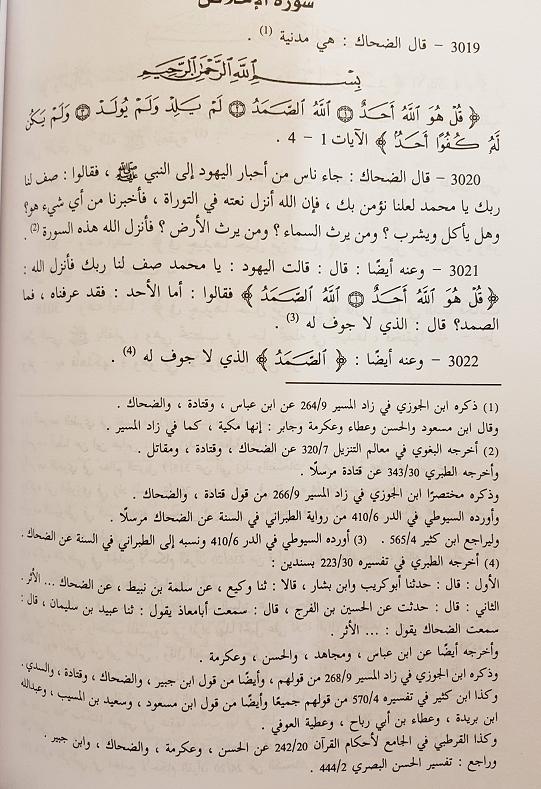 سورة الإخلاص
3019 - قال الضحاك : هي مدنية (1) .
بِسْمِ اللَّهِ الرَّحْمَٰنِ الرَّحِيمِ
﴿ قُلْ هُوَ اللَّهُ أَحَدٌ ① اللَّهُ الصَّمَدُ ② لَمْ يَلِدْ وَلَمْ يُولَدْ ③ وَلَمْ يَكُن
لَّهُ كُفُوًا أَحَدٌ ﴾ الآيات 1 - 4 .
3020 - قال الضحاك : جاء ناس من أحبار اليهود إلى النبي ﷺ ، فقالوا : صف لنا
ربك يا محمد لعلنا نؤمن بك ، فإن الله أنزل نعته في التوراة ، فأخبرنا من أي شيء هو؟
وهل يأكل ويشرب ؟ ومن يرث السماء ؟ ومن يرث الأرض ؟ فأنزل الله هذه السورة (2) .
3021 - وعنه أيضًا : قال : قالت اليهود : يا محمد صف لنا ربك فأنزل الله :
﴿ قُلْ هُوَ اللَّهُ أَحَدٌ ① اللَّهُ الصَّمَدُ ﴾ فقالوا : أما الأحد : فقد عرفناه ، فما
الصمد؟ قال : الذي لا جوف له (3) .
3022 - وعنه أيضًا : ﴿ الصَّمَدُ ﴾ الذي لا جوف له (4) .
(1) ذكره ابن الجوزي في زاد المسير 264/9 عن ابن عباس ، وقتادة ، والضحاك .
وقال ابن مسعود والحسن وعطاء وعكرمة وجابر : إنها مكية ، كما في زاد المسير .
(2) أخرجه البغوي في معالم التنزيل 320/7 عن الضحاك ، وقتادة ، ومقاتل .
وأخرجه الطبري 343/30 عن قتادة مرسلًا .
وذكره مختصرًا ابن الجوزي في زاد المسير 266/9 من قول قتادة ، والضحاك .
وأورده السيوطي في الدر 410/6 من رواية الطبراني في السنة عن الضحاك مرسلًا .
وليراجع ابن كثير 565/4 . (3) أورده السيوطي في الدر 410/6 ونسبه إلى الطبراني في السنة عن الضحاك .
(4) أخرجه الطبري في تفسيره 223/30 بسندين :
الأول : قال : حدثنا أبوكريب وابن بشار ، قالا : ثنا وكيع ، عن سلمة بن نبيط ، عن الضحاك ... الأثر .
الثاني : قال : حدثت عن الحسين بن الفرج ، قال : سمعت أبامعاذ يقول : ثنا عبيد بن سليمان ، قال :
سمعت الضحاك يقول : ... الأثر .
وأخرجه أيضًا عن ابن عباس ، ومجاهد ، والحسن ، وعكرمة .
وذكره ابن الجوزي في زاد المسير 268/9 من قولهم ، وأيضًا من قول ابن جبير ، والضحاك ، وقتادة ، والسدي .
وكذا ابن كثير في تفسيره 570/4 من قولهم جميعًا وأيضًا من قول ابن مسعود ، وسعيد بن المسيب ، وعبدالله
ابن بريدة ، وعطاء بن أبي رباح ، وعطية العوفي .
وكذا القرطبي في الجامع لأحكام القرآن 242/20 عن الحسن ، وعكرمة ، والضحاك ، وابن جبير .
وراجع : تفسير الحسن البصري 444/2 .